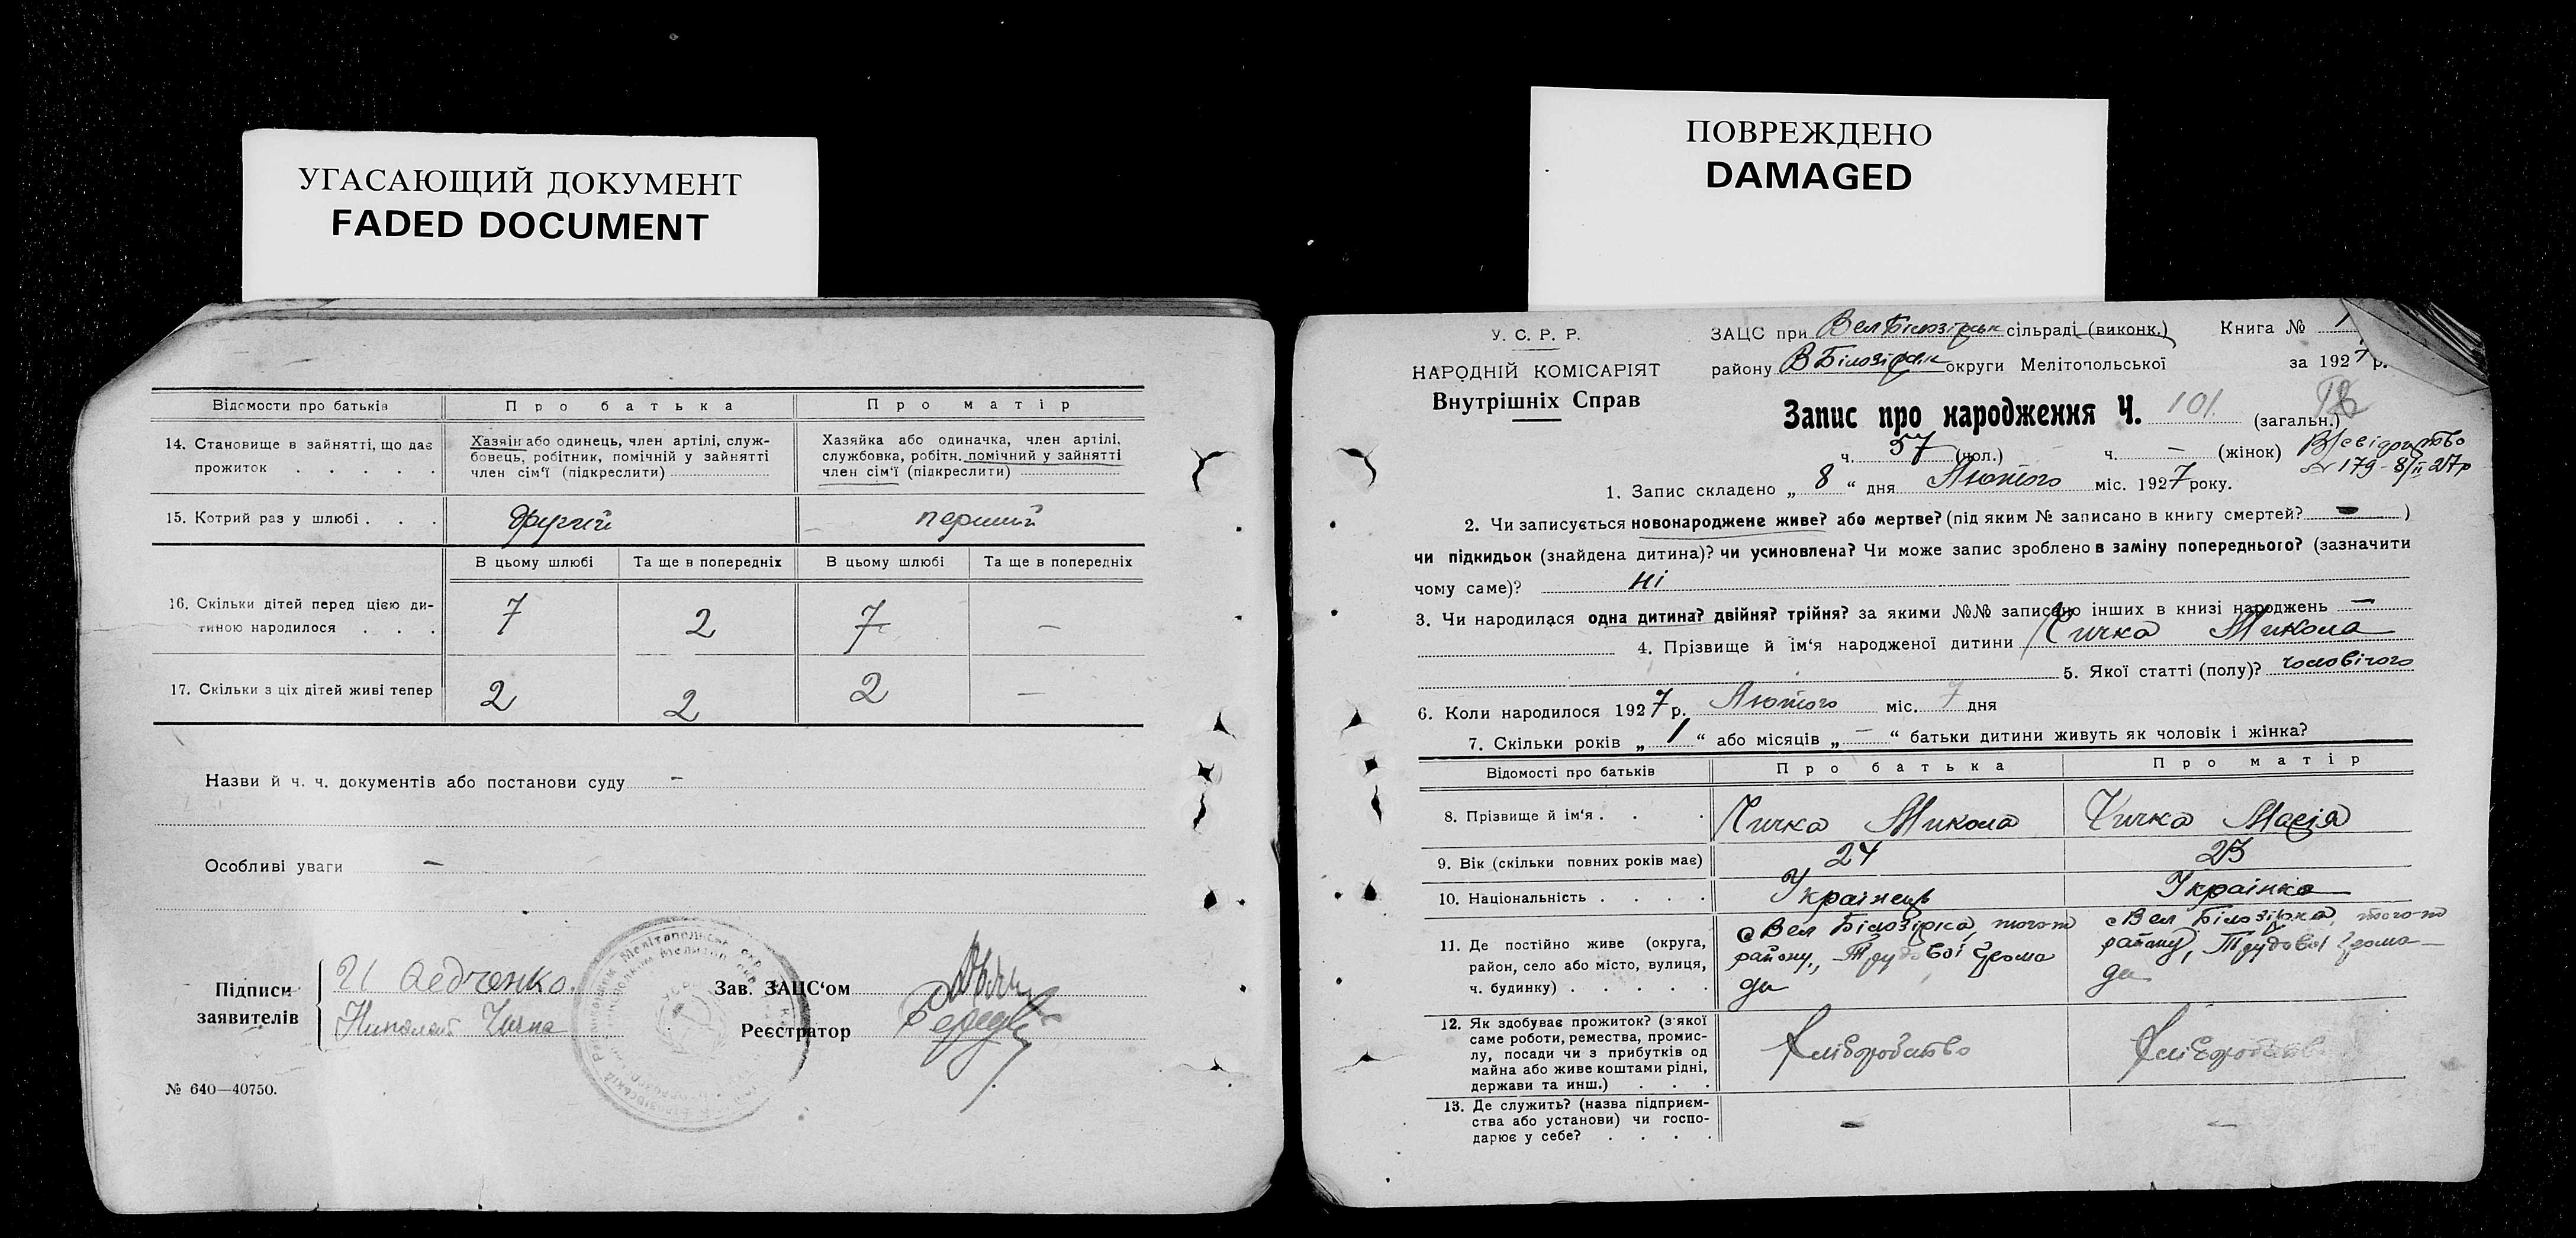 УГАСАЮЩИЙ ДОКУМЕНТ
FADED DOCUMENT
Відомости про батьків
Про батька
Про матір
14. Становище в зайнятті, що дає прожиток . . . . .
Хазяін або одинець, член артілі, служ-
бовець, робітник, помічній у зайнятті
член сім'ї (підкреслити)
Хазяйка або одиначка, член артілі,
службовка, робітн. помічний у зайнятті
член сім'ї (підкреслити)
15. Котрий раз у шлюбі . . .
другий
перший
В цьому шлюбі
Та ще в попередніх
В цьому шлюбі
Та ще в попередніх
16. Скільки дітей перед цією ди-
тиною народилося . . .
7
2
7
—
17. Скільки з ціх дітей живі тепер
2
2
2
—
Назви й ч. ч. документів або постанови суду —
Особливі уваги —
Підписи
заявителів
Зав. ЗАЦС'ом
Реєстратор
№ 640—40750.
ПОВРЕЖДЕНО
DAMAGED
У. С. Р. Р.
НАРОДНІЙ КОМІСАРІЯТ
Внутрішніх Справ
ЗАЦС при Вел Білозірськ сільраді (виконк.)
Книга №
району В Білозірськ округи Мелітопольської
за 1927 р.
Запис про народження Ч. 101 (загальн.)
ч. 57 (чол.) ч. — (жінок)
№ 179 - 8/II 27р
1. Запис складено „ 8 “ дня Лютого міс. 1927 року.
2. Чи записується новонароджене живе? або мертве? (під яким № записано в книгу смертей? — )
чи підкидьок (знайдена дитина)? чи усиновлена? Чи може запис зроблено в заміну попереднього? (зазначити
чому саме)? ні
3. Чи народилася одна дитина? двійня? трійня? за якими №№ записано інших в книзі народжень —
4. Прізвище й ім'я народженої дитини Чичка Микола
5. Якої статті (полу)? чоловічого
6. Коли народилося 1927 р. Лютого міс. 7 дня
7. Скільки років „ 1 “ або місяців „ — “ батьки дитини живуть як чоловік і жінка?
Відомості про батьків
Про батька
Про матір
8. Прізвище й ім'я . . .
Чичка Микола
Чичка Марія
9. Вік (скільки повних років має)
24
23
10. Національність . . . .
Українець
Українка
11. Де постійно живе (округа,
район, село або місто, вулиця,
ч. будинку) . . . . .
с Вел Білозірка, того-ж
району, Трудової грома
ди
с Вел Білозірка, того-ж
району, Трудової грома—
ди
12. Як здобуває прожиток? (з якої
саме роботи, ремества, промис-
лу, посади чи з прибутків од
майна або живе коштами рідні,
держави та инш.) . . .
Хліборобство
Хліборобство
13. Де служить? (назва підприєм-
ства або установи) чи госпо-
дарює у себе? . . . .
—
—